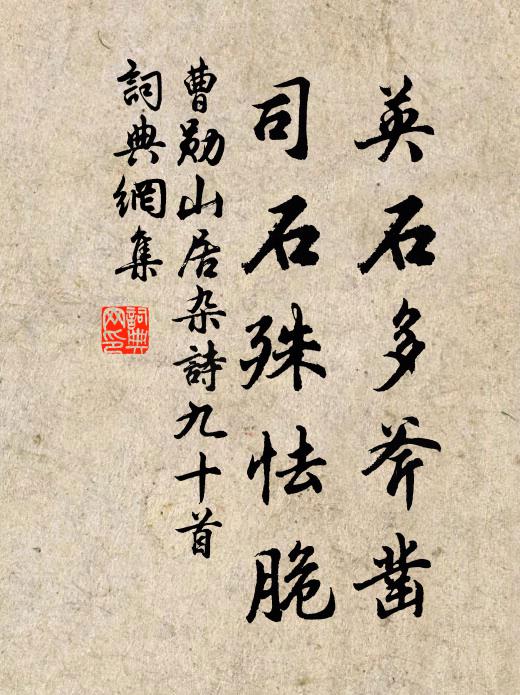 英石多斧凿
司石殊怯脆
曹勋山居杂詩九十首
詞典網集
詞典網印